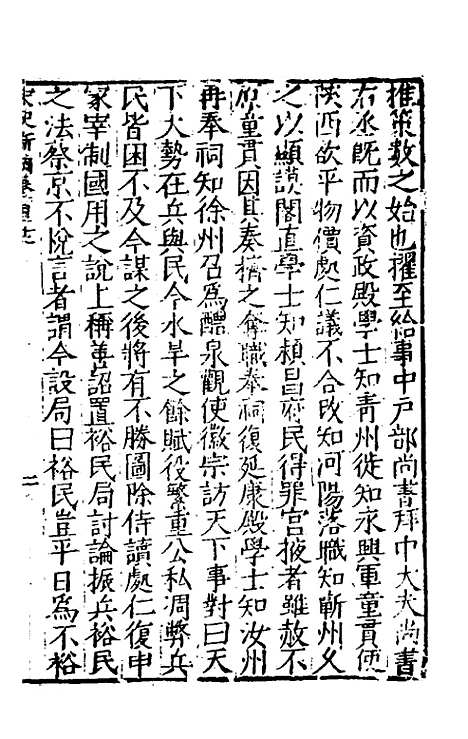 推策數之始也擢至給事中戶部尚書拜中大夫尚書
右丞旣而以資政殿學士知青州徙知永興軍童貫使
陝西欲平物價處仁議不合改知河陽落職知蘄州久
之以顯謨閣直學士知潁昌府民得罪宮掖者雖赦不
原童貫因其奏擠之奪職奉祠復延康殿學士知汝州
再奉祠知徐州召爲醴泉觀使徽宗訪天下事對曰天
下大勢在兵與民今水旱之餘賦役繁重公私凋弊兵
民皆困不及今謀之後將有不勝圖除侍讀處仁復申
冢宰制國用之說上稱善詔置裕民局討論振兵裕民
之法蔡京不悅言者謂今設局曰裕民豈平日爲不裕
宋史新編卷百
二